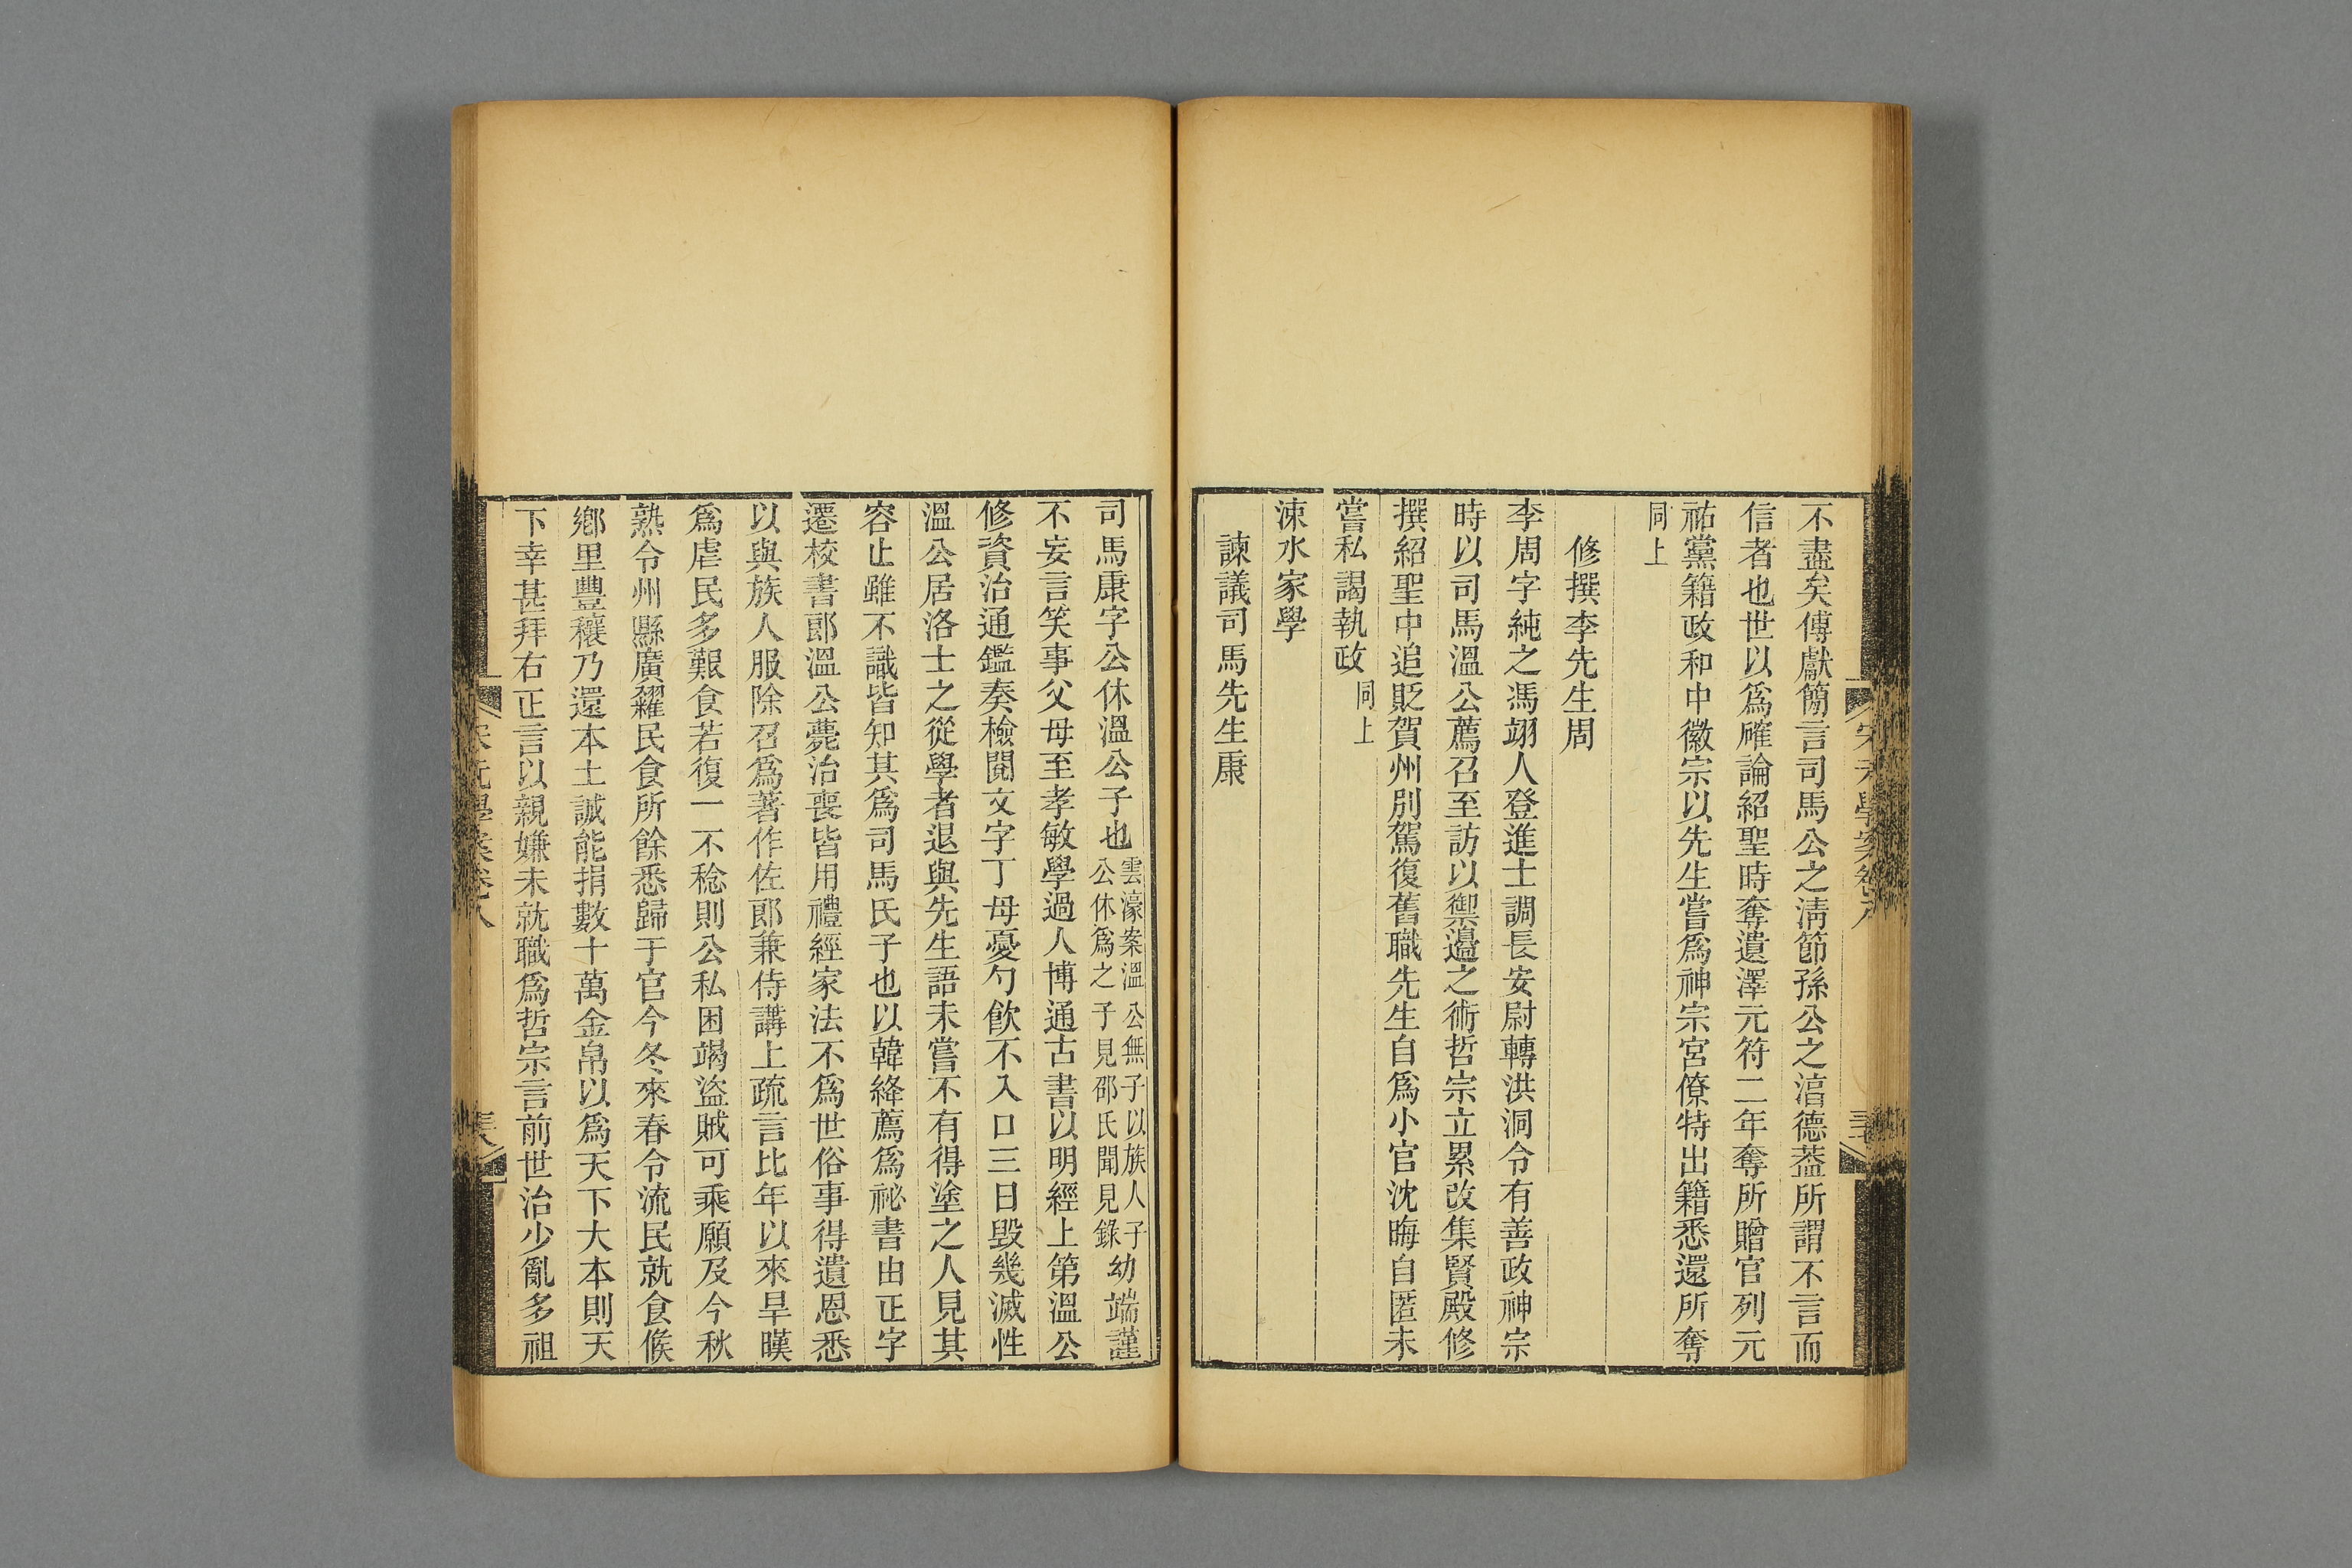 不盡矣傅獻簡言司馬公之淸節孫公之湻德葢所謂不言而
信者也世以爲確論紹聖時奪遺澤元符二年奪所贈官列元
祐黨籍政和中徽宗以先生嘗爲神宗宮僚特出籍悉還所奪
同上
修撰李先生周
李周字純之馮翊人登進士調長安尉轉洪洞令有善政神宗
時以司馬溫公薦召至訪以禦邉之術哲宗立累改集賢殿修
撰紹聖中追貶賀州別駕復舊職先生自爲小官沈晦自匿未
嘗私謁執政同上
涑水家學
諫議司馬先生康
司馬康字公休溫公子也雲濠案溫公無子以族人子公休爲之子見邵氏聞見錄幼端謹
不妄言笑事父母至孝敏學過人博通古書以明經上第溫公
修資治通鑑奏檢閱文字丁母憂勺飮不入口三日毀幾滅性
溫公居洛士之從學者退與先生語未嘗不有得塗之人見其
容止雖不識皆知其爲司馬氏子也以韓絳薦爲祕書由正字
遷校書郞溫公薨治喪皆用禮經家法不爲世俗事得遺恩悉
以與族人服除召爲著作佐郞兼侍講上疏言比年以來旱暵
爲虐民多艱食若復一不稔則公私困竭盜賊可乘願及今秋
熟令州縣廣糴民食所餘悉歸于官今冬來春令流民就食候
鄕里豐穰乃還本土誠能捐數十萬金帛以爲天下大本則天
下幸甚拜右正言以親嫌未就職爲哲宗言前世治少亂多祖